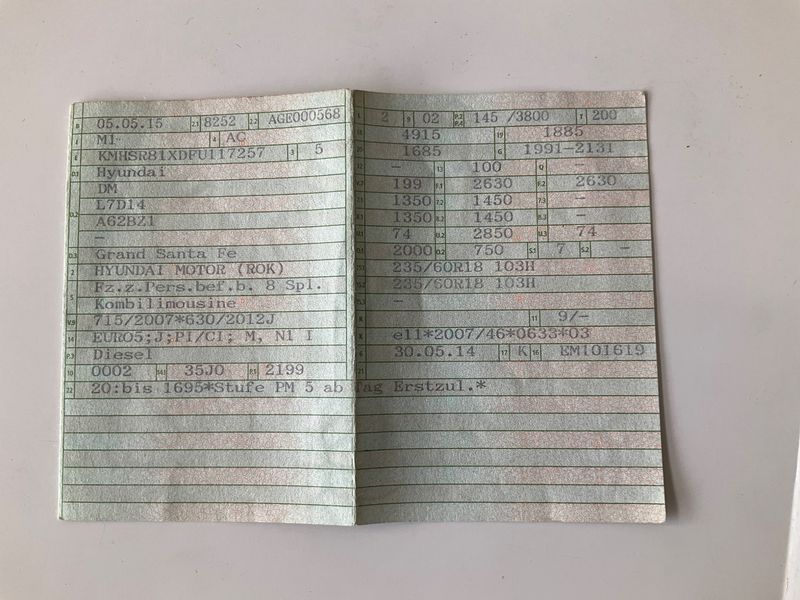 B 05.05.15 2.1 8252 2.2 AGE000568
J M1 4 AC
E KMHSR81XDFU117257 3 5
D.1 Hyundai
DM
L7D14
D.2 A62BZ1
–
D.3 Grand Santa Fe
2 HYUNDAI MOTOR (ROK)
Fz.z.Pers.bef.b. 8 Spl.
5 Kombilimousine
V.9 715/2007*630/2012J
14 EURO5;J;PI/CI; M, N1 I
P.3 Diesel
10 0002 14.1 35J0 P.1 2199
22 20:bis 1695*Stufe PM 5 ab Tag Erstzul.*
L 2 9 02 P.2 P.4 145 /3800 T 200
18 4915 19 1885
20 1685 G 1991-2131
12 – 13 100 Q –
V.7 199 F.1 2630 F.2 2630
7.1 1350 7.2 1450 7.3 –
8.1 1350 8.2 1450 8.3 –
U.1 74 U.2 2850 U.3 74
O.1 2000 O.2 750 S.1 7 S.2 –
15.1 235/60R18 103H
15.2 235/60R18 103H
15.3 –
R 11 9/–
K e11*2007/46*0633*03
6 30.05.14 17 K 16 EM101619
21